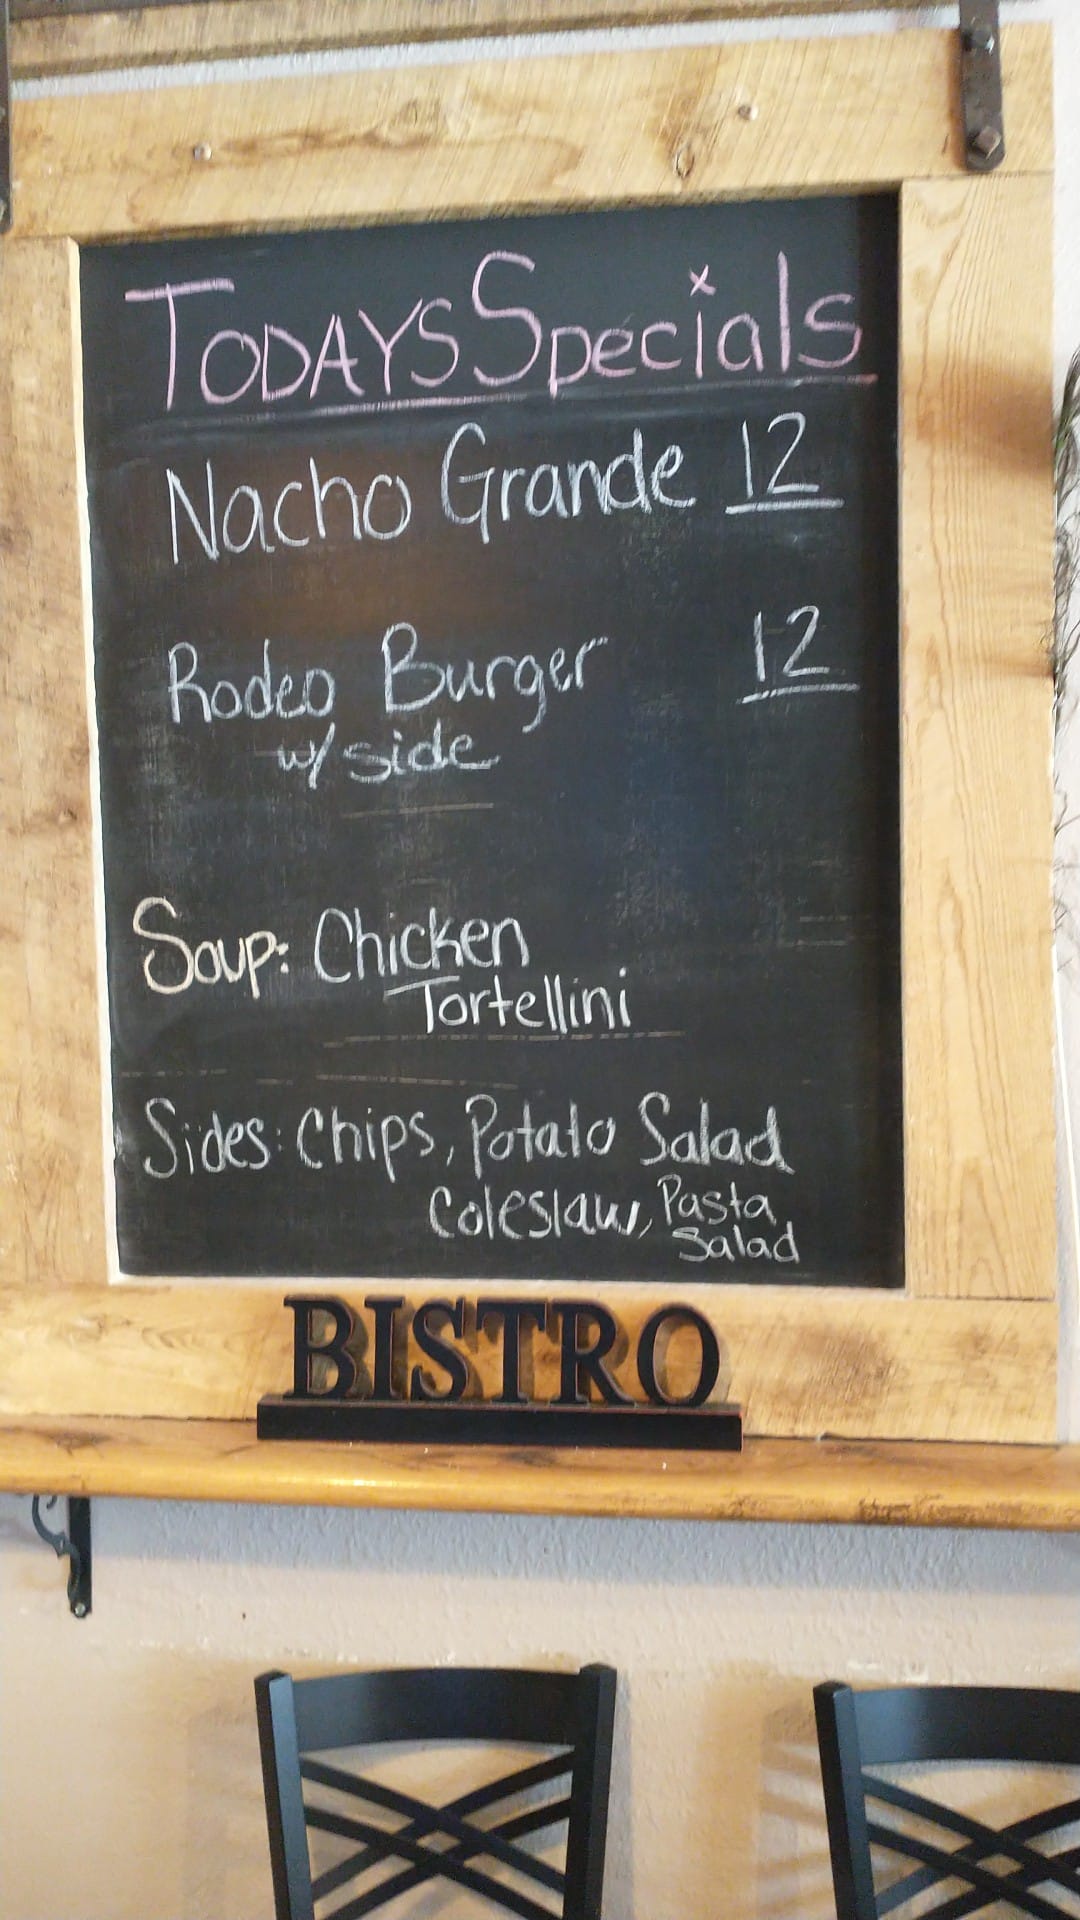 TODAYS Specials
Nacho Grande 12
Rodeo Burger 12
w/ side
Soup: Chicken
Tortellini
Sides: Chips, Potato Salad
Coleslaw, Pasta
Salad
BISTRO